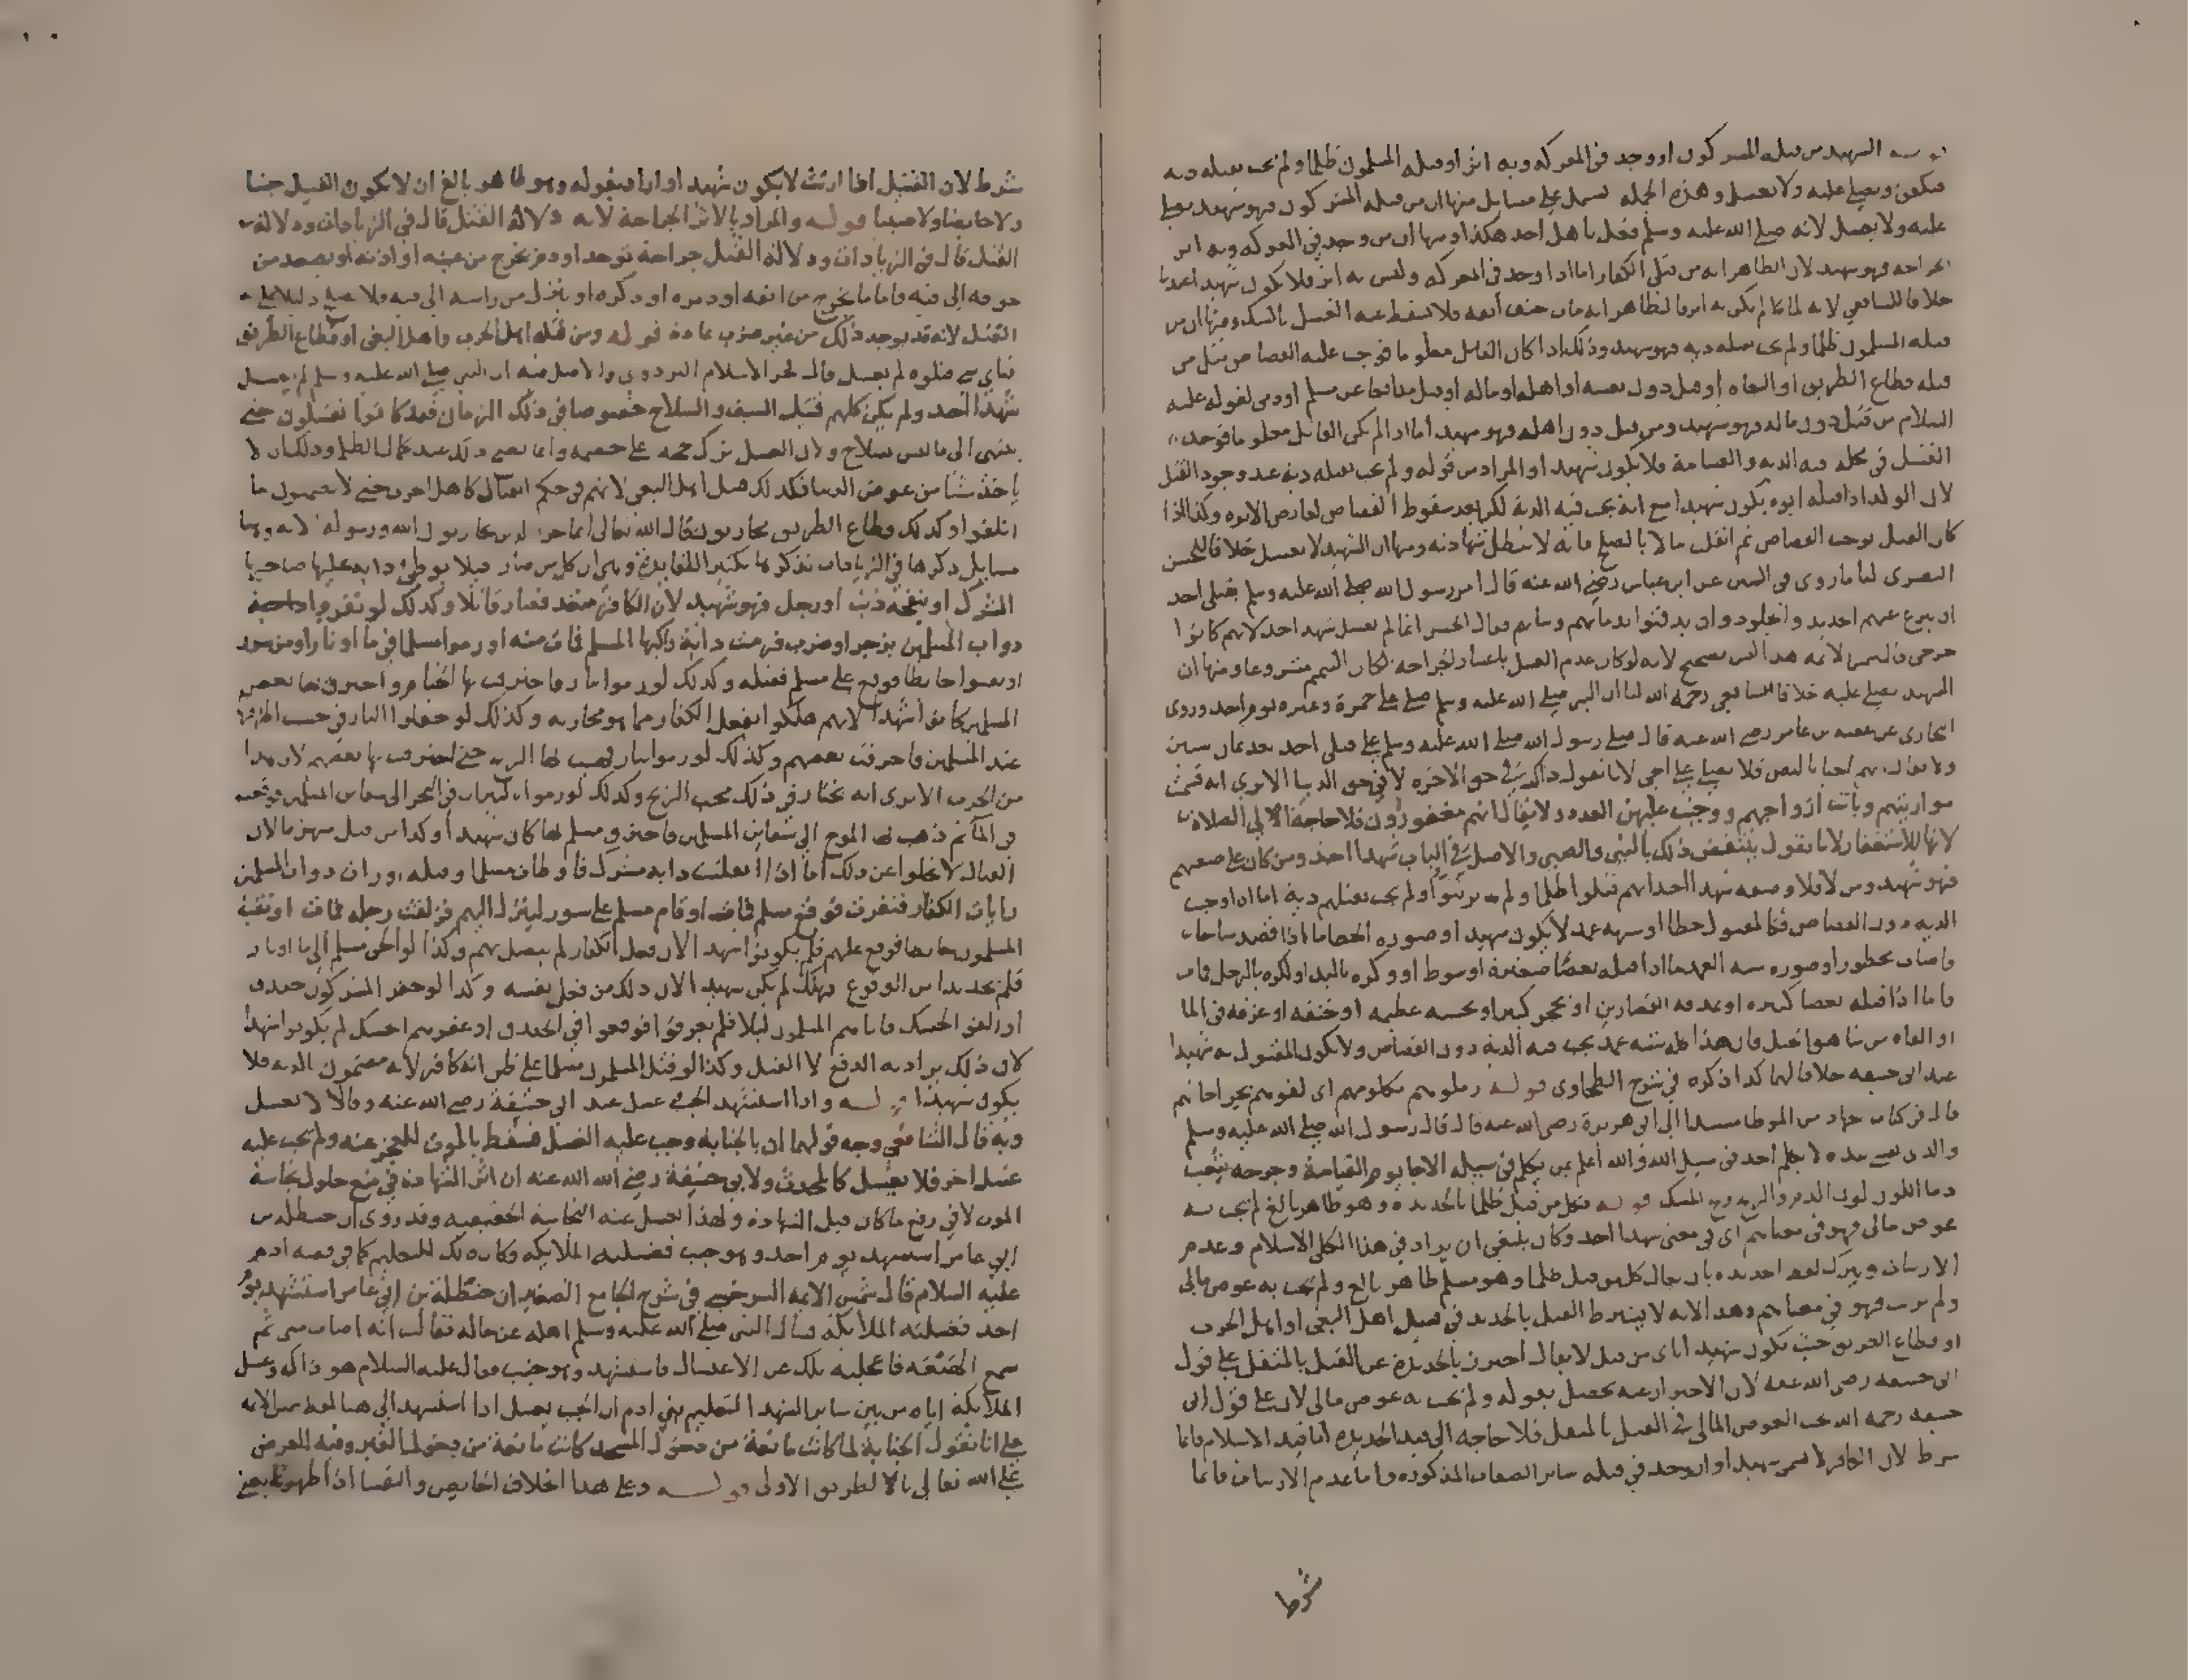 قوله الشهيد من قتله المشركون او وجد في المعركة وبه اثر او قتله المسلمون ظلما ولم يجب بقتله دية
فيكفن ويصلى عليه ولا يغسل وهذه الجملة تشمل على مسايل منها ان من قتله المشركون فهو شهيد يصلى
عليه ولا يغسل لانه صلى الله عليه وسلم فعل باهل احد هكذا ومنها ان من وجد في المعركة وبه اثر
الجراحة فهو شهيد لان الظاهر انه من قتلى الكفار اما اذا وجد في المعركة وليس به اثر فلا يكون شهيدا عندنا
خلافا للشافعي لانه لما لم يكن به اثر فالظاهر انه مات حتف انفه فلا يسقط عنه الغسل بالشك ومنها ان من
قتله المسلمون ظلما ولم يجب بقتله دية فهو شهيد وذلك اذا كان القاتل معلوما فوجب عليه القصاص مثل من
قتله قطاع الطريق او البغاة او قتل دون نفسه او اهله او ماله او قتل مدافعا عن مسلم او ذمي لقوله عليه
السلام من قتل دون ماله فهو شهيد ومن قتل دون اهله فهو شهيد اما اذا لم يكن القاتل معلوما فوجد
القتيل في محلة فيه الدية والقسامة فلا يكون شهيدا والمراد من قوله ولم يجب بقتله دية عند وجود القتل
لان الولد اذا قتله ابوه يكون شهيدا مع انه يجب فيه الدية لكن بعد سقوط القصاص لعارض الابوة وكذا اذا
كان القتل يوجب القصاص ثم انقلب مالا بالصلح فانه لا تبطل شهادته ومنها ان الشهيد لا يغسل خلافا للحسن
البصري لنا ما روى في السنن عن ابن عباس رضي الله عنه قال امر رسول الله صلى الله عليه وسلم بقتلى احد
ان ينزع عنهم الحديد والجلود وان يدفنوا بدمائهم وثيابهم وقال الحسن انما لم يغسل شهداء احد لانهم كانوا
جرحى قال شمس الائمة هذا ليس بصحيح لانه لو كان عدم الغسل باعتبار الجراحة لكان التيمم مشروعا ومنها ان
الشهيد يصلى عليه خلافا للشافعي رحمه الله لنا ان النبي صلى الله عليه وسلم صلى على حمزة وغيره يوم احد وروى
البخاري عن عقبة بن عامر رضي الله عنه قال صلى رسول الله صلى الله عليه وسلم على قتلى احد بعد ثمان سنين
ولا يقال انهم احيا بالنص فلا يصلى على الحي لانا نقول ذاك في حق الاخرة لا في حق الدنيا الا يرى انه قسمت
مواريثهم وبانت ازواجهم ووجبت عليهن العدة ولا يقال انهم مغفورون فلا حاجة الى الصلاة
لانها للاستغفار لانا نقول ينتقض ذلك بالنبي والصبي والاصل في الباب شهدا احد ومن كان على صفتهم
فهو شهيد ومن لا فلا وصفة شهداء احد انهم قتلوا ظلما ولم يرتثوا ولم يجب بقتلهم دية اما اذا وجب
الدية دون القصاص كالمقتول خطا او شبه عمد لا يكون شهيدا وصورة الخطا ما اذا قصد مباحا
فاصاب محظورا وصورة شبه العمد ما اذا قتله بعصا صغيرة او سوط او وكزه باليد او لكزه بالرجل فمات
فاما اذا قتله بعصا كبيرة او بمدقة القصارين او بحجر كبير او بخشبة عظيمة او خنقه او غرقه في الما
او القاه من شاهق الجبل فان هذا كله شبه عمد يجب فيه الدية دون القصاص ولا يكون المقتول به شهيدا
عند ابي حنيفة خلافا لهما كذا ذكره في شرح الطحاوي قوله زملوهم بكلومهم اي لفوهم بجراحاتهم
قال في كتاب جهاد من الموطا مسندا الى ابي هريرة رضي الله عنه قال قال رسول الله صلى الله عليه وسلم
والذي نفسي بيده لا يكلم احد في سبيل الله والله اعلم بمن يكلم في سبيله الا جا يوم القيامة وجرحه يثعب
دما اللون لون الدم والريح ريح المسك قوله فكل من قتل ظلما بالحديدة وهو طاهر بالغ لم يجب به
عوض مالي فهو في معناهم اي في معنى شهدا احد وكان ينبغي ان يزاد في هذا الكلى الاسلام وعدم
الارتثاث ويترك لفظ الحديدة بان يقال كل من قتل ظلما وهو مسلم طاهر بالغ ولم يجب به عوض مالي
ولم يرتث فهو في معناهم وهذا لانه لا يشترط القتل بالحديد في قتيل اهل البغي او اهل الحرب
او قطاع الطريق حيث يكون شهيدا باي شي قتل لا يقال احترز بالحديدة عن القتيل بالمثقل على قول
ابي حنيفة رضي الله عنه لان الاحتراز عنه يحصل بقوله ولم يجب به عوض مالي لان على قول ابي
حنيفة رحمه الله يجب العوض المالي في القتل بالمثقل فلا حاجة الى قيد الحديدة اما قيد الاسلام فانما
شرط لان الكافر لا يسمى شهيدا وان وجد في قتله ساير الصفات المذكورة واما عدم الارتثاث فانما
شرط
شرط لان القتيل اذا ارتث لا يكون شهيدا واراد بقوله وهو طاهر بالغ ان لا يكون القتيل جنبا
ولا حايضا ولا صبيا قوله والمراد بالاثر الجراحة لانه دلالة القتل قال في الزيادات ودلالة
القتل قال في الزيادات ودلالة القتل جراحة توجد او دم يخرج من عينه او اذنه او يصعد من
جوفه الى فيه فاما ما يخرج من انفه او دبره او ذكره او ينزل من راسه الى فيه فلا يصلح دليلا على
القتل لانه قد يوجد ذلك من غير ضرب عادة قوله ومن قتله اهل الحرب واهل البغي او قطاع الطريق
فباي شي قتلوه لم يغسل قال فخر الاسلام البزدوي والاصل فيه ان النبي صلى الله عليه وسلم لم يغسل
شهدا احد ولم يكن كلهم قتيل السيف والسلاح خصوصا في ذلك الزمان فقد كانوا يقتلون حتى
ينتهى الى ما ليس بسلاح ولان الغسل يترك
ياخذ شيا من عوض الدنيا فكذلك قتيل اهل البغي لانهم في حكم القتال كاهل الحرب حتى لا يضمنون ما
اتلفوا وكذلك قطاع الطريق محاربون قال الله تعالى انما جزا الذين يحاربون الله ورسوله الاية وهنا
مسايل ذكرها في الزيادات نذكرها تكثيرا للفايدة وهي ان كل من صار قتيلا بوطي دابة عليها صاحبها
المشرك او
دواب المسلمين بزجر او ضرب فرمت دابة راكبها المسلم فمات منه او رموا مسلما في ما او نار او من سور
او نقبوا حايطا فوقع على مسلم فقتله وكذلك لو رموا نارا فاحترقت بها الخيام واحترق بها بعض
المسلمين كانوا شهدا لانهم هلكوا بفعل الكفار مما هو محاربة وكذلك لو جعلوا النار في خشب
عند المسلمين فاحرقت بعضهم وكذلك لو رموا بنار فهبت بها الريح حتى احترقت بها بعضهم لان هذا
من الحرب الا يرى انه يختار في ذلك مهب الريح وكذلك لو رموا بالنيران في البحر الى سفاين المسلمين
في الما ثم ذهب بها الموج الى سفاين المسلمين فاحترق مسلم بها كان شهيدا وكذا من قتل منهزما لان
القتال لا يخلوا عن ذلك اما اذا انفلتت دابة مشرك فاوطات مسلما وقتله او رات دواب المسلمين
رايات الكفار فنفرت فوقع مسلم فمات او قام مسلم على سور لينزل اليهم فزلقت رجله فمات او نقب
المسلمون حايطا فوقع عليهم فلم يكونوا شهدا لان فعل الكفار لم يتصل بهم وكذا لو الجى مسلم الى ما او نار
فلم يجد بدا من الوقوع فهلك لم يكن شهيدا لان ذلك من فعل نفسه وكذا لو حفر المشركون خندق
او القوا الحسك فاتاهم المسلمون ليلا فلم يعرفوا فوقعوا في الخندق او عقرهم الحسك لم يكونوا شهدا
لان ذلك يراد به الدفع لا القتل وكذا لو قتل المسلمون مسلما على ظن انه كافر لانه مضمون الدية فلا
يكون شهيدا قوله واذا استشهد الجنب غسل عند ابي حنيفة رضي الله عنه وقالا لا يغسل
وبه قال الشافعي وجه قولهما ان بالجنابة وجب عليه الغسل فسقط بالموت للعجز عنه ولم يجب عليه
غسل اخر فلا يغسل كالمحدث ولابي حنيفة رضي الله الله عنه ان اثر الشهادة في منع حلول نجاسة
الموت لا في رفع ما كان قبل الشهادة ولهذا يغسل عنه النجاسة الحقيقية وقد روى ان حنظلة بن
ابي عامر استشهد يوم احد وهو جنب فغسلته الملايكة وكان ذلك للتعليم كما في قصة ادم
عليه السلام قال شمس الايمة السرخسي في شرح الجامع الصغير ان حنظلة بن ابي عامر استشهد يوم
احد فغسلته الملايكة فسال النبي صلى الله عليه وسلم اهله عن حاله فقالت انه اصاب مني ثم
سمع الهيعة فاعجلته تلك عن الاغتسال فاستشهد وهو جنب فقال عليه السلام هو ذاك وغسل
الملايكة اياه من بين ساير الشهدا لتعليم بني ادم ان الجنب يغسل اذا استشهد الى هنا لفظ شمس الايمة
على انا نقول الجنابة لما كانت مانعة من دخول المسجد كانت مانعة من دخول القبر وفيه العرض
على الله تعالى بالطريق الاولى قوله وعلى هذا الخلاف الحايض والنفسا اذا طهرتا يعني